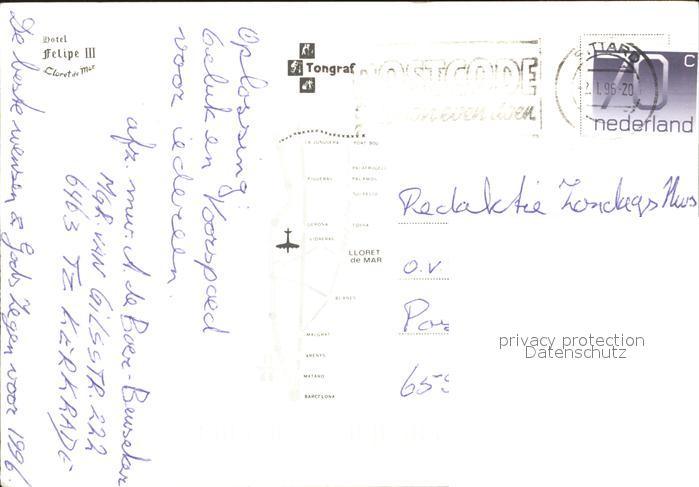 Hotel
Felipe III
Lloret de Mar
De beste wensen & Gods zegen voor 1996.
Oplossing:
Geluk en Voorspoed
voor iedereen.
afz. mw. A. de Boer-
MGR. VAN GILSSTR. 222
6463 TZ KERKRADE
Tongraf
POSTCODE
even doen
1.96-20
70 c
nederland
LA JUNQUERA
PORT BOU
FIGUERAS
PALAFRUGELL
PALAMOS
GERONA
TOSSA
LLORET
de MAR
BLANES
MALGRAT
ARENYS
MATARO
BARCELONA
Redaktie Zondags
o.v.
privacy protection
Datenschutz